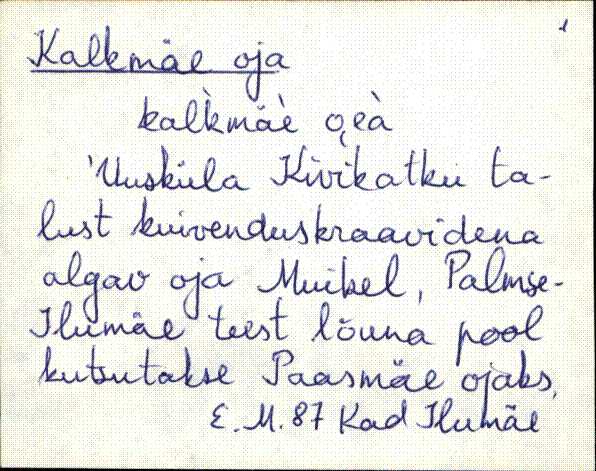 1
Kalkmäe oja
kal̀kmäè o̭eà
'Uusküla Kivikatku ta-
lust kuivenduskraavidena
algav oja Muikel, Palmse-
Ilumäe teest lõuna pool
kutsutakse Paasmäe ojaks.
E. M. 87 Kad Ilumäe